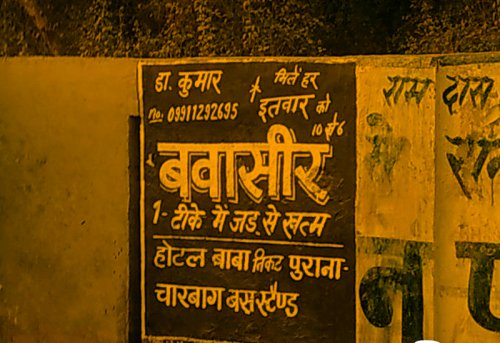 डा. कुमार
मिलें हर
no. 09911292695
इतवार को
10 से 6
बवासीर
1- टीके में जड़ से खत्म
होटल बाबा निकट पुराना-
चारबाग बसस्टैण्ड
राम दास